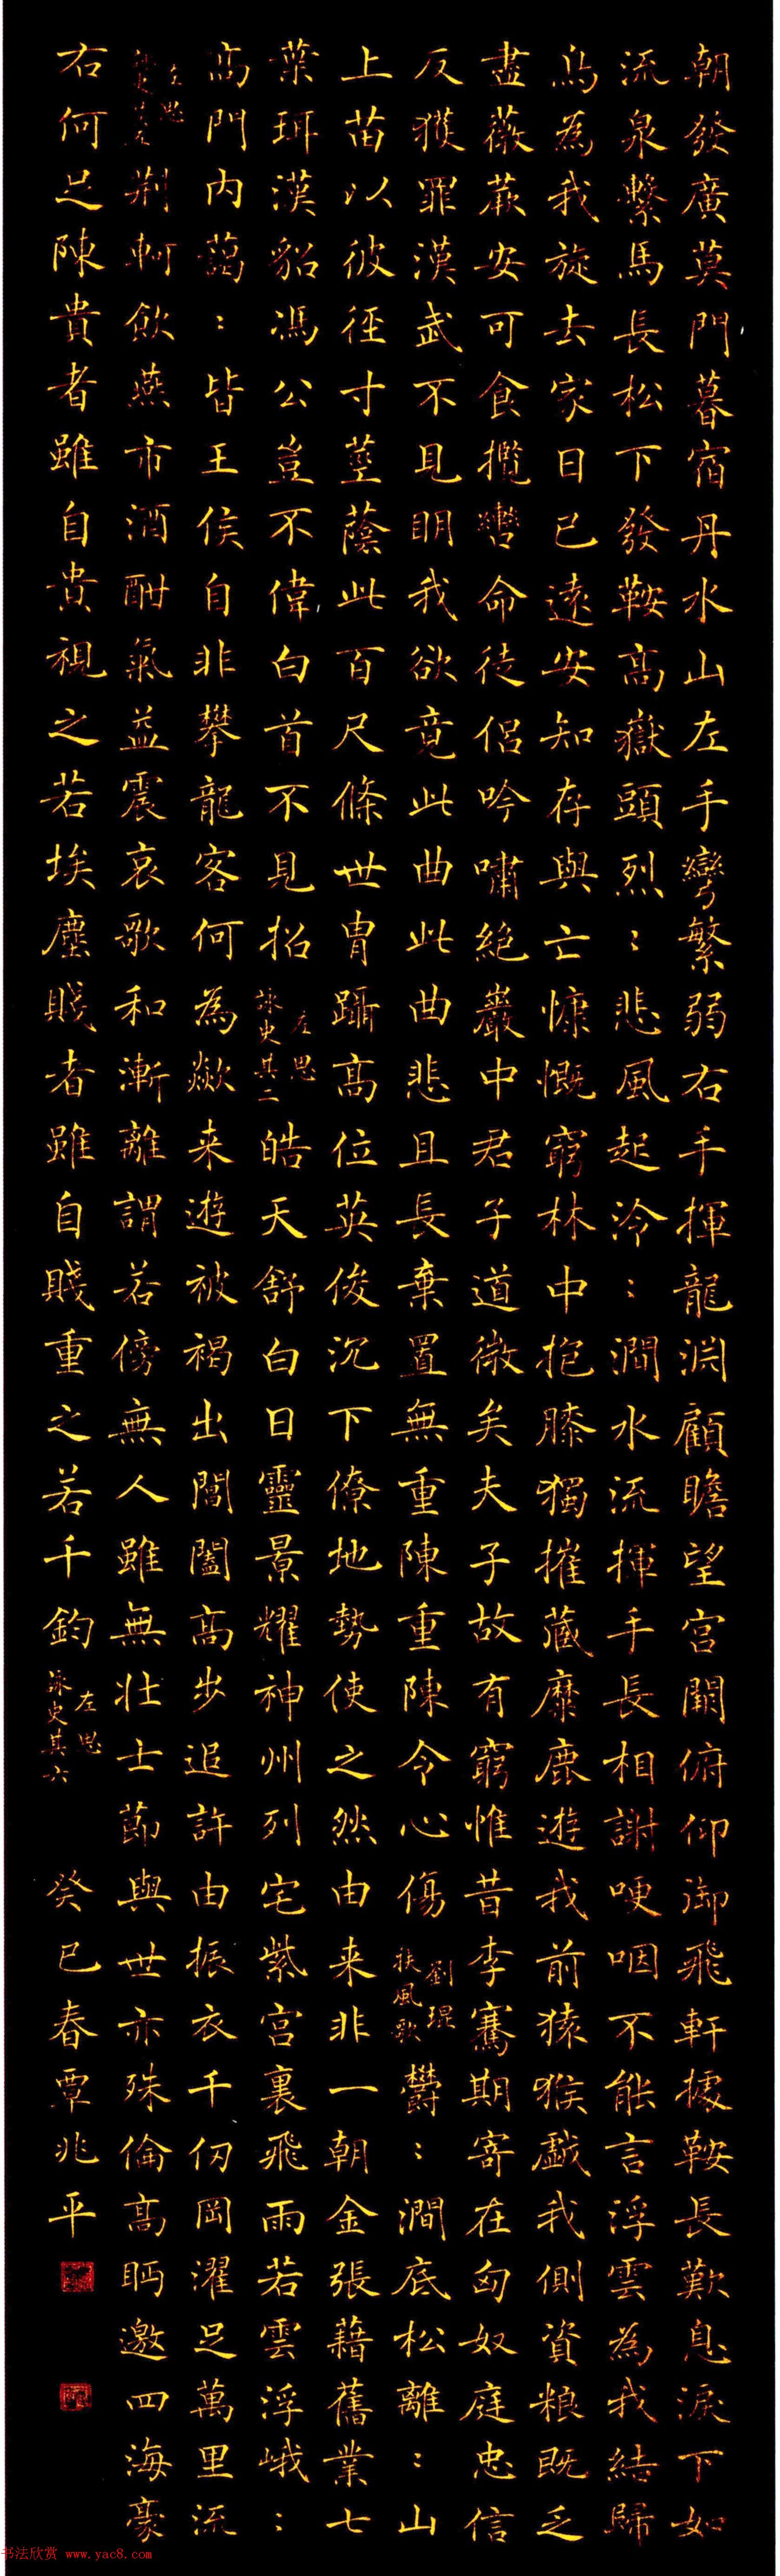 朝發廣莫門暮宿丹水山左手彎繁弱右手揮龍淵顧瞻望宮闕俯仰御飛軒據鞍長歎息淚下如
流泉繫馬長松下發鞍高嶽頭烈：悲風起泠：澗水流揮手長相謝哽咽不能言浮雲為我結歸
鳥為我旋去家日已遠安知存與亡慷慨窮林中抱膝獨摧藏麋鹿遊我前猿猴戲我側資粮既乏
盡薇蕨安可食攬轡命徒侶吟嘯絕巖中君子道微矣夫子故有窮惟昔李騫期寄在匈奴庭忠信
反獲罪漢武不見明我欲竟此曲此曲悲且長棄置無重陳重陳令心傷 劉琨 扶風歌 鬱：澗底松離：山
上苗以彼徑寸莖蔭此百尺條世胄躡高位英俊沉下僚地勢使之然由来非一朝金張藉舊業七
葉珥漢貂馮公豈不偉白首不見招 左思 詠史其二 皓天舒白日靈景耀神州列宅紫宮裏飛雨若雲浮峨：
高門內藹：皆王侯自非攀龍客何為歘来遊被褐出閶闔高步追許由振衣千仞岡濯足萬里流
左思 詠史其五 荆軻飲燕市酒酣氣益震哀歌和漸離謂若傍無人雖無壯士節與世亦殊倫高眄邈四海豪
右何足陳貴者雖自貴視之若埃塵賤者雖自賤重之若千鈞 左思 詠史其六 癸巳春覃兆平
书法欣赏 www.yac8.com